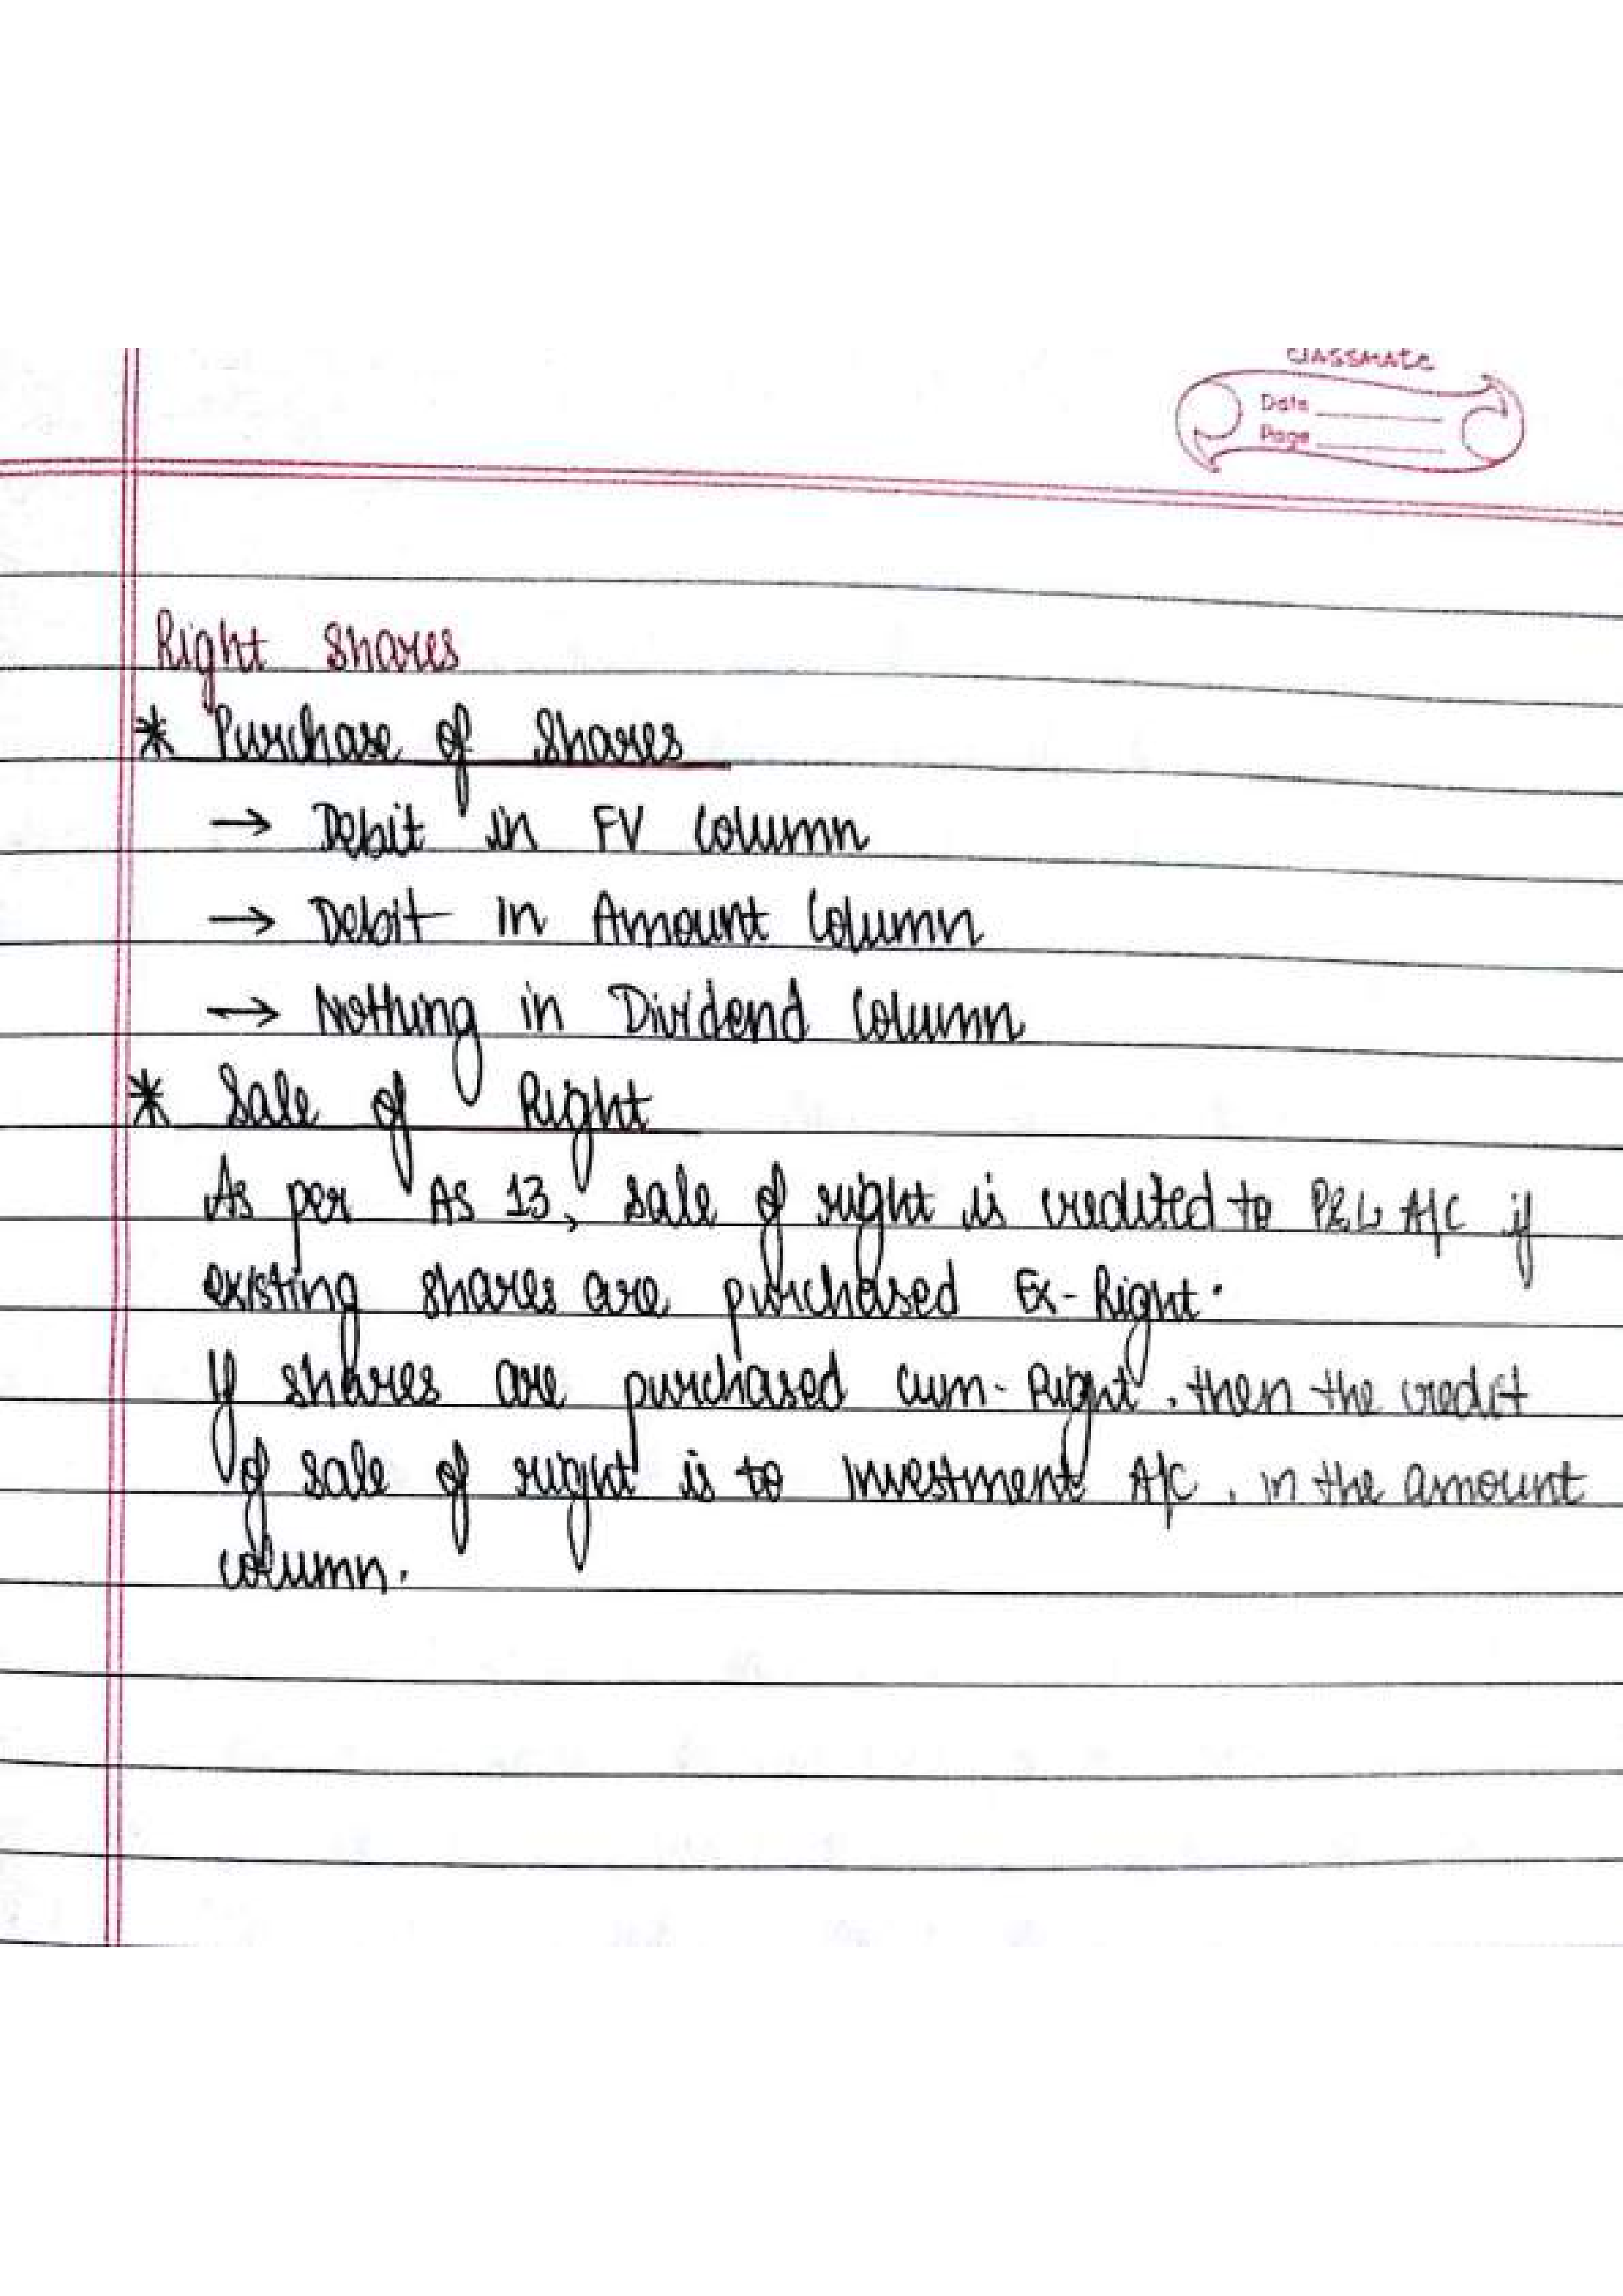 classmate
Date
Page
Right Shares
* Purchase of Shares
→ Debit in FV Column
→ Debit in Amount Column
→ Nothing in Dividend Column
* Sale of Right
As per As 13, sale of right is credited to P&L A/C if
existing shares are purchased Ex-Right.
If shares are purchased cum-Right, then the credit
of sale of right is to Investment A/C, in the amount
column.